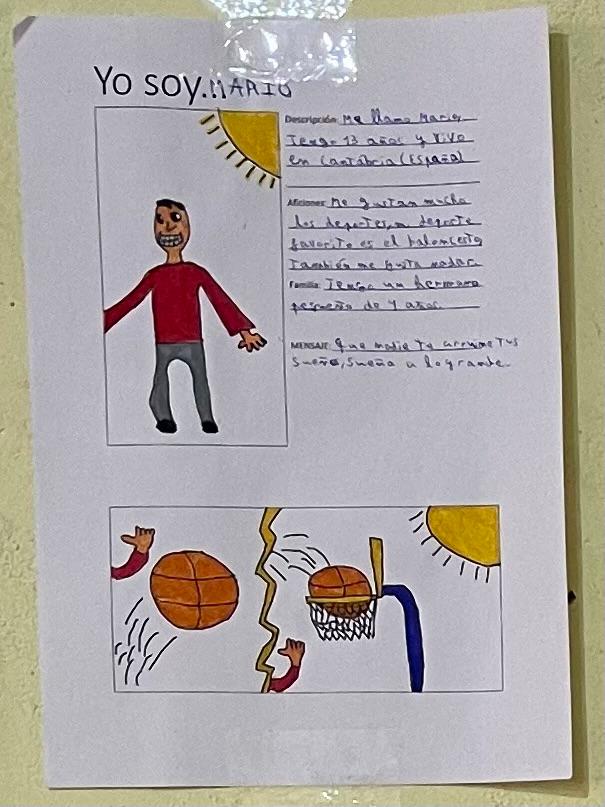 Yo soy.MARIO
Descripción: Me llamo Mario,
Tengo 13 años y vivo
en Cantabria (España)
Aficiones: Me gustan mucho
los deportes, m deporte
favorito es el baloncesto
También me gusta nadar.
Familia: Tengo un hermano
pequeño de 4 años.
MENSAJE: Que nadie te arruine tus
sueños, sueña a lo grande.